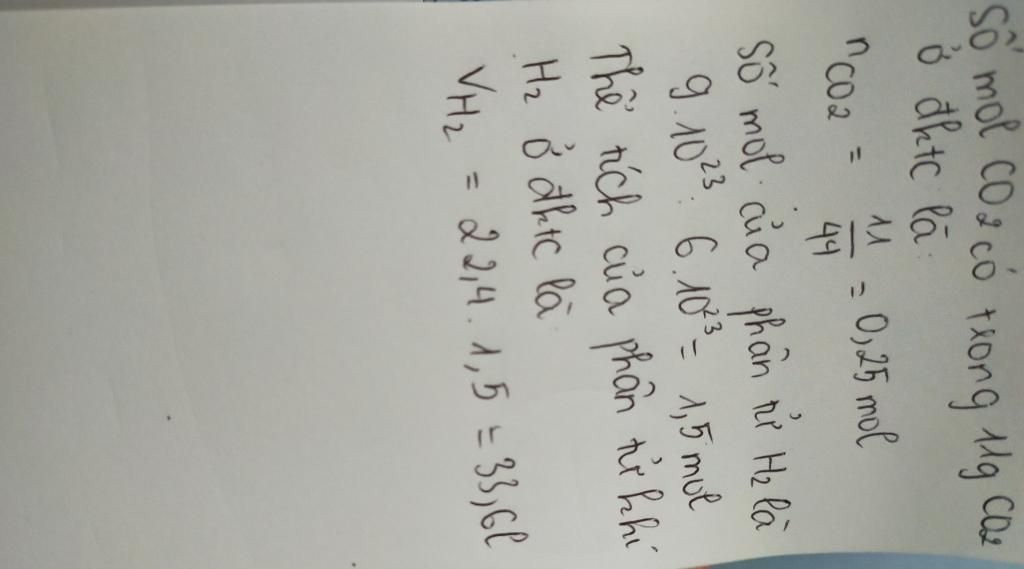 Số mol CO2 có trong 11g CO2
ở đktc là:
nCO2 = 11/44 = 0,25 mol
Số mol của phân tử H2 là
9.10²³ : 6.10²³ = 1,5 mol
Thể tích của phân tử khí
H2 ở đktc là
VH2 = 22,4 . 1,5 = 33,6l